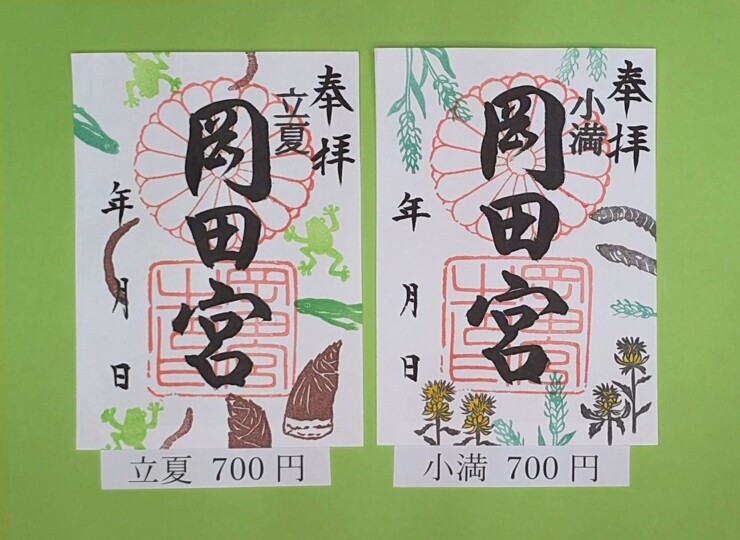 奉拝
立夏
岡田宮
年 月 日
立夏 700円
奉拝
小満
岡田宮
年 月 日
小満 700円